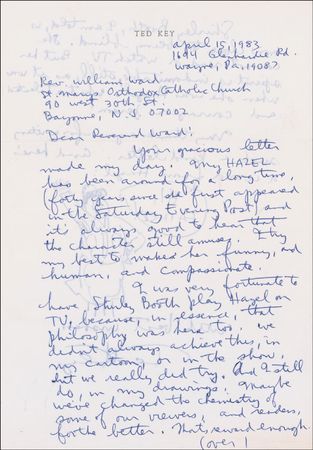 TED KEY
April 15, 1983
1694 Glenhardie Rd.
Wayne, Pa. 19087
Rev. William Ward
St. Marys Orthodox Catholic Church
90 West 30th St.
Bayonne, N.J. 07002
Dear Reverend Ward:
Your gracious letter
made my day. My HAZEL
has been around for a long time,
(forty years since she first appeared
in the Saturday Evening Post) and
it's always good to hear that
the character still amuses. I try
my best to make her funny, and
human, and compassionate.
I was very fortunate to
have Shirley Booth play Hazel on
TV, because, in essence, that
philosophy was hers too. We
didn't always achieve this, in
my cartoons or in the show,
but we really did try. And I still
do, in my drawings. Maybe
we've changed the chemistry of
some of our viewers, and readers,
for the better. That's reward enough.
(over)